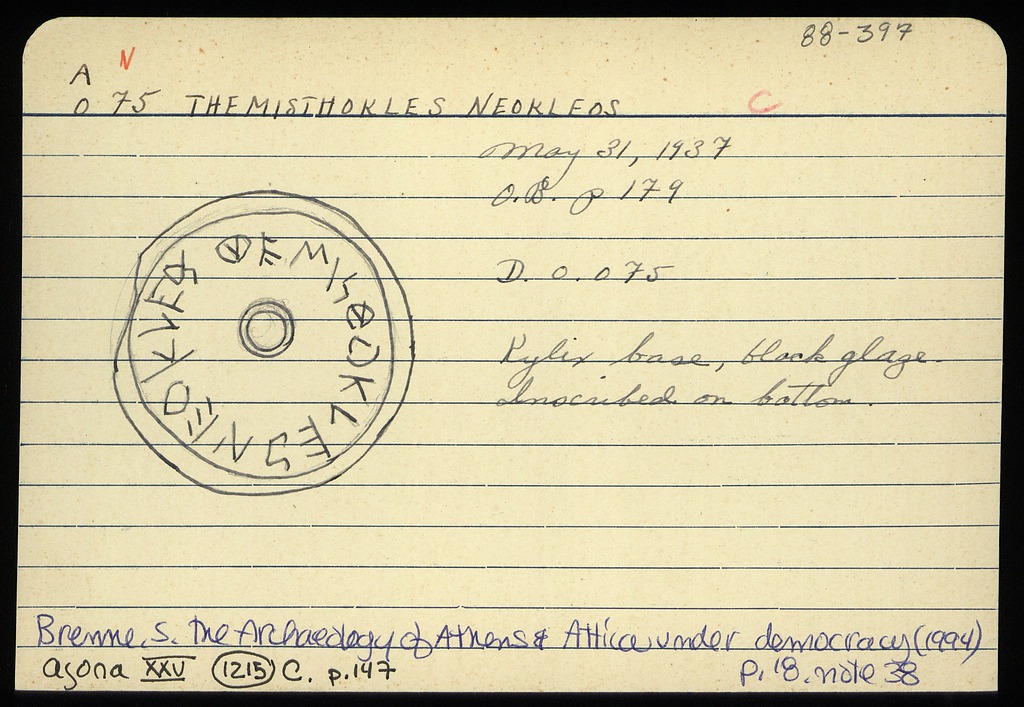 88-397
A N
O 75 THEMISTHOKLES NEOKLEOS C
May 31, 1937
O.B. p 179
D. O. 075
Kylix base, black glaze.
Inscribed on bottom.
Brenne, S. the Archaeology of Athens & Attica under democracy (1994)
p. 18. note 38
agora XXV (1215) C. p.147